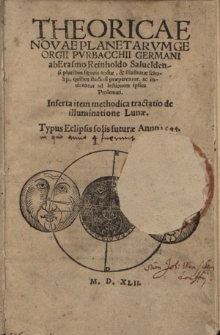 THEORICAE
NOVAE PLANETARVM GE
ORGII PVRBACCHII GERMANI
ab Erasmo Reinholdo Salueldensi
pluribus figuris auctæ, & illustratæ scho
lijs, quibus studiosi præparentur, ac in
uitentur ad lectionem ipsius
Ptolemæi.
Inserta item methodica tractatio de
illuminatione Lunæ.
Typus Eclipsis solis futuræ Anno
M. D. XLII.